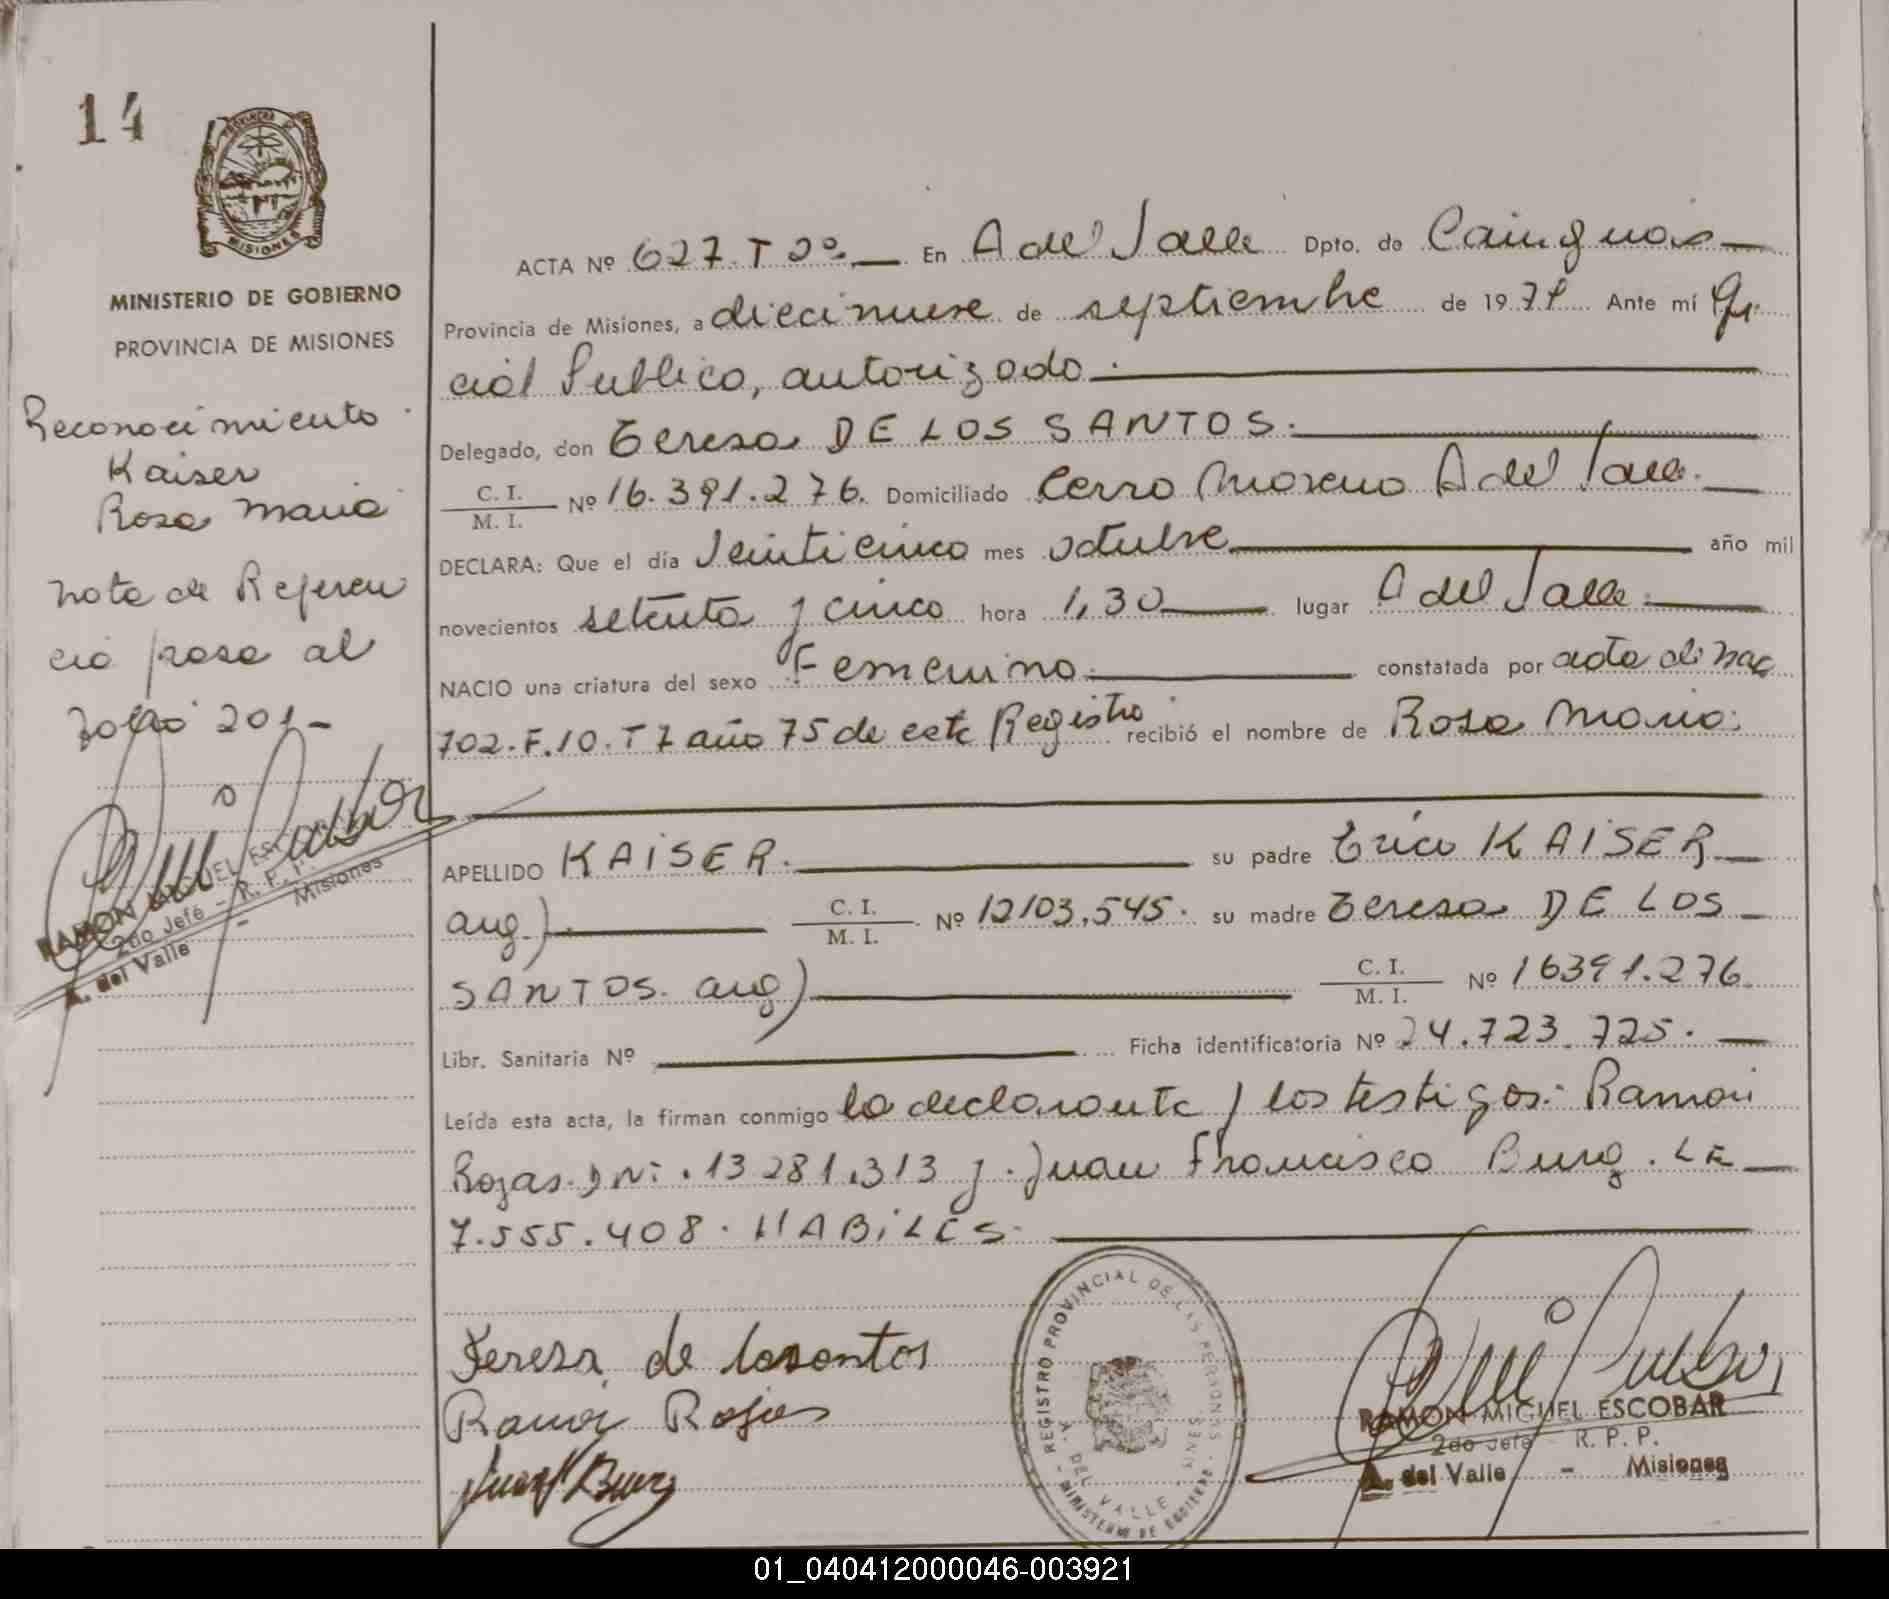 14
PROVINCIA DE
MISIONES
MINISTERIO DE GOBIERNO
PROVINCIA DE MISIONES
Reconocimiento
Kaiser
Rosa Maria
Nota de Referen
cia pasa al
Folio 201-
RAMON MIGUEL ESCOBAR
2do Jefe - R. P. P.
A. del Valle - Misiones
ACTA Nº 627. T 2º. En A del Valle Dpto. de Cainguás
Provincia de Misiones, a diecinueve de septiembre de 19 Ante mí Ofi
cial Publico, autorizado.
Delegado, don Teresa DE LOS SANTOS.
C. I.
M. I. Nº 16.391.276. Domiciliado Cerro Moreno A del Valle.
DECLARA: Que el día Veinticinco mes octubre año mil
novecientos setenta y cinco hora 1,30 lugar A del Valle.
NACIO una criatura del sexo Femenino. constatada por acta de nac
702. F. 10. T 7 año 75 de este Registro recibió el nombre de Rosa Maria.
APELLIDO KAISER. su padre Erico KAISER
arg). C. I.
M. I. Nº 12103.545. su madre Teresa DE LOS
SANTOS. arg) C. I.
M. I. Nº 16391.276.
Libr. Sanitaria Nº Ficha identificatoria Nº 24.723.725.
Leída esta acta, la firman conmigo la declarante y los testigos: Ramón
Rojas. DNI. 13281.313 y. Juan Francisco Burg. LE
7.555.408. HABILES.
Teresa de losantos
Ramón Rojas
Juan F Burg
REGISTRO PROVINCIAL DE LAS PERSONAS
A. DEL VALLE
MINISTERIO DE GOBIERNO
RAMON MIGUEL ESCOBAR
2do Jefe R. P. P.
A. del Valle - Misiones
01_040412000046-003921